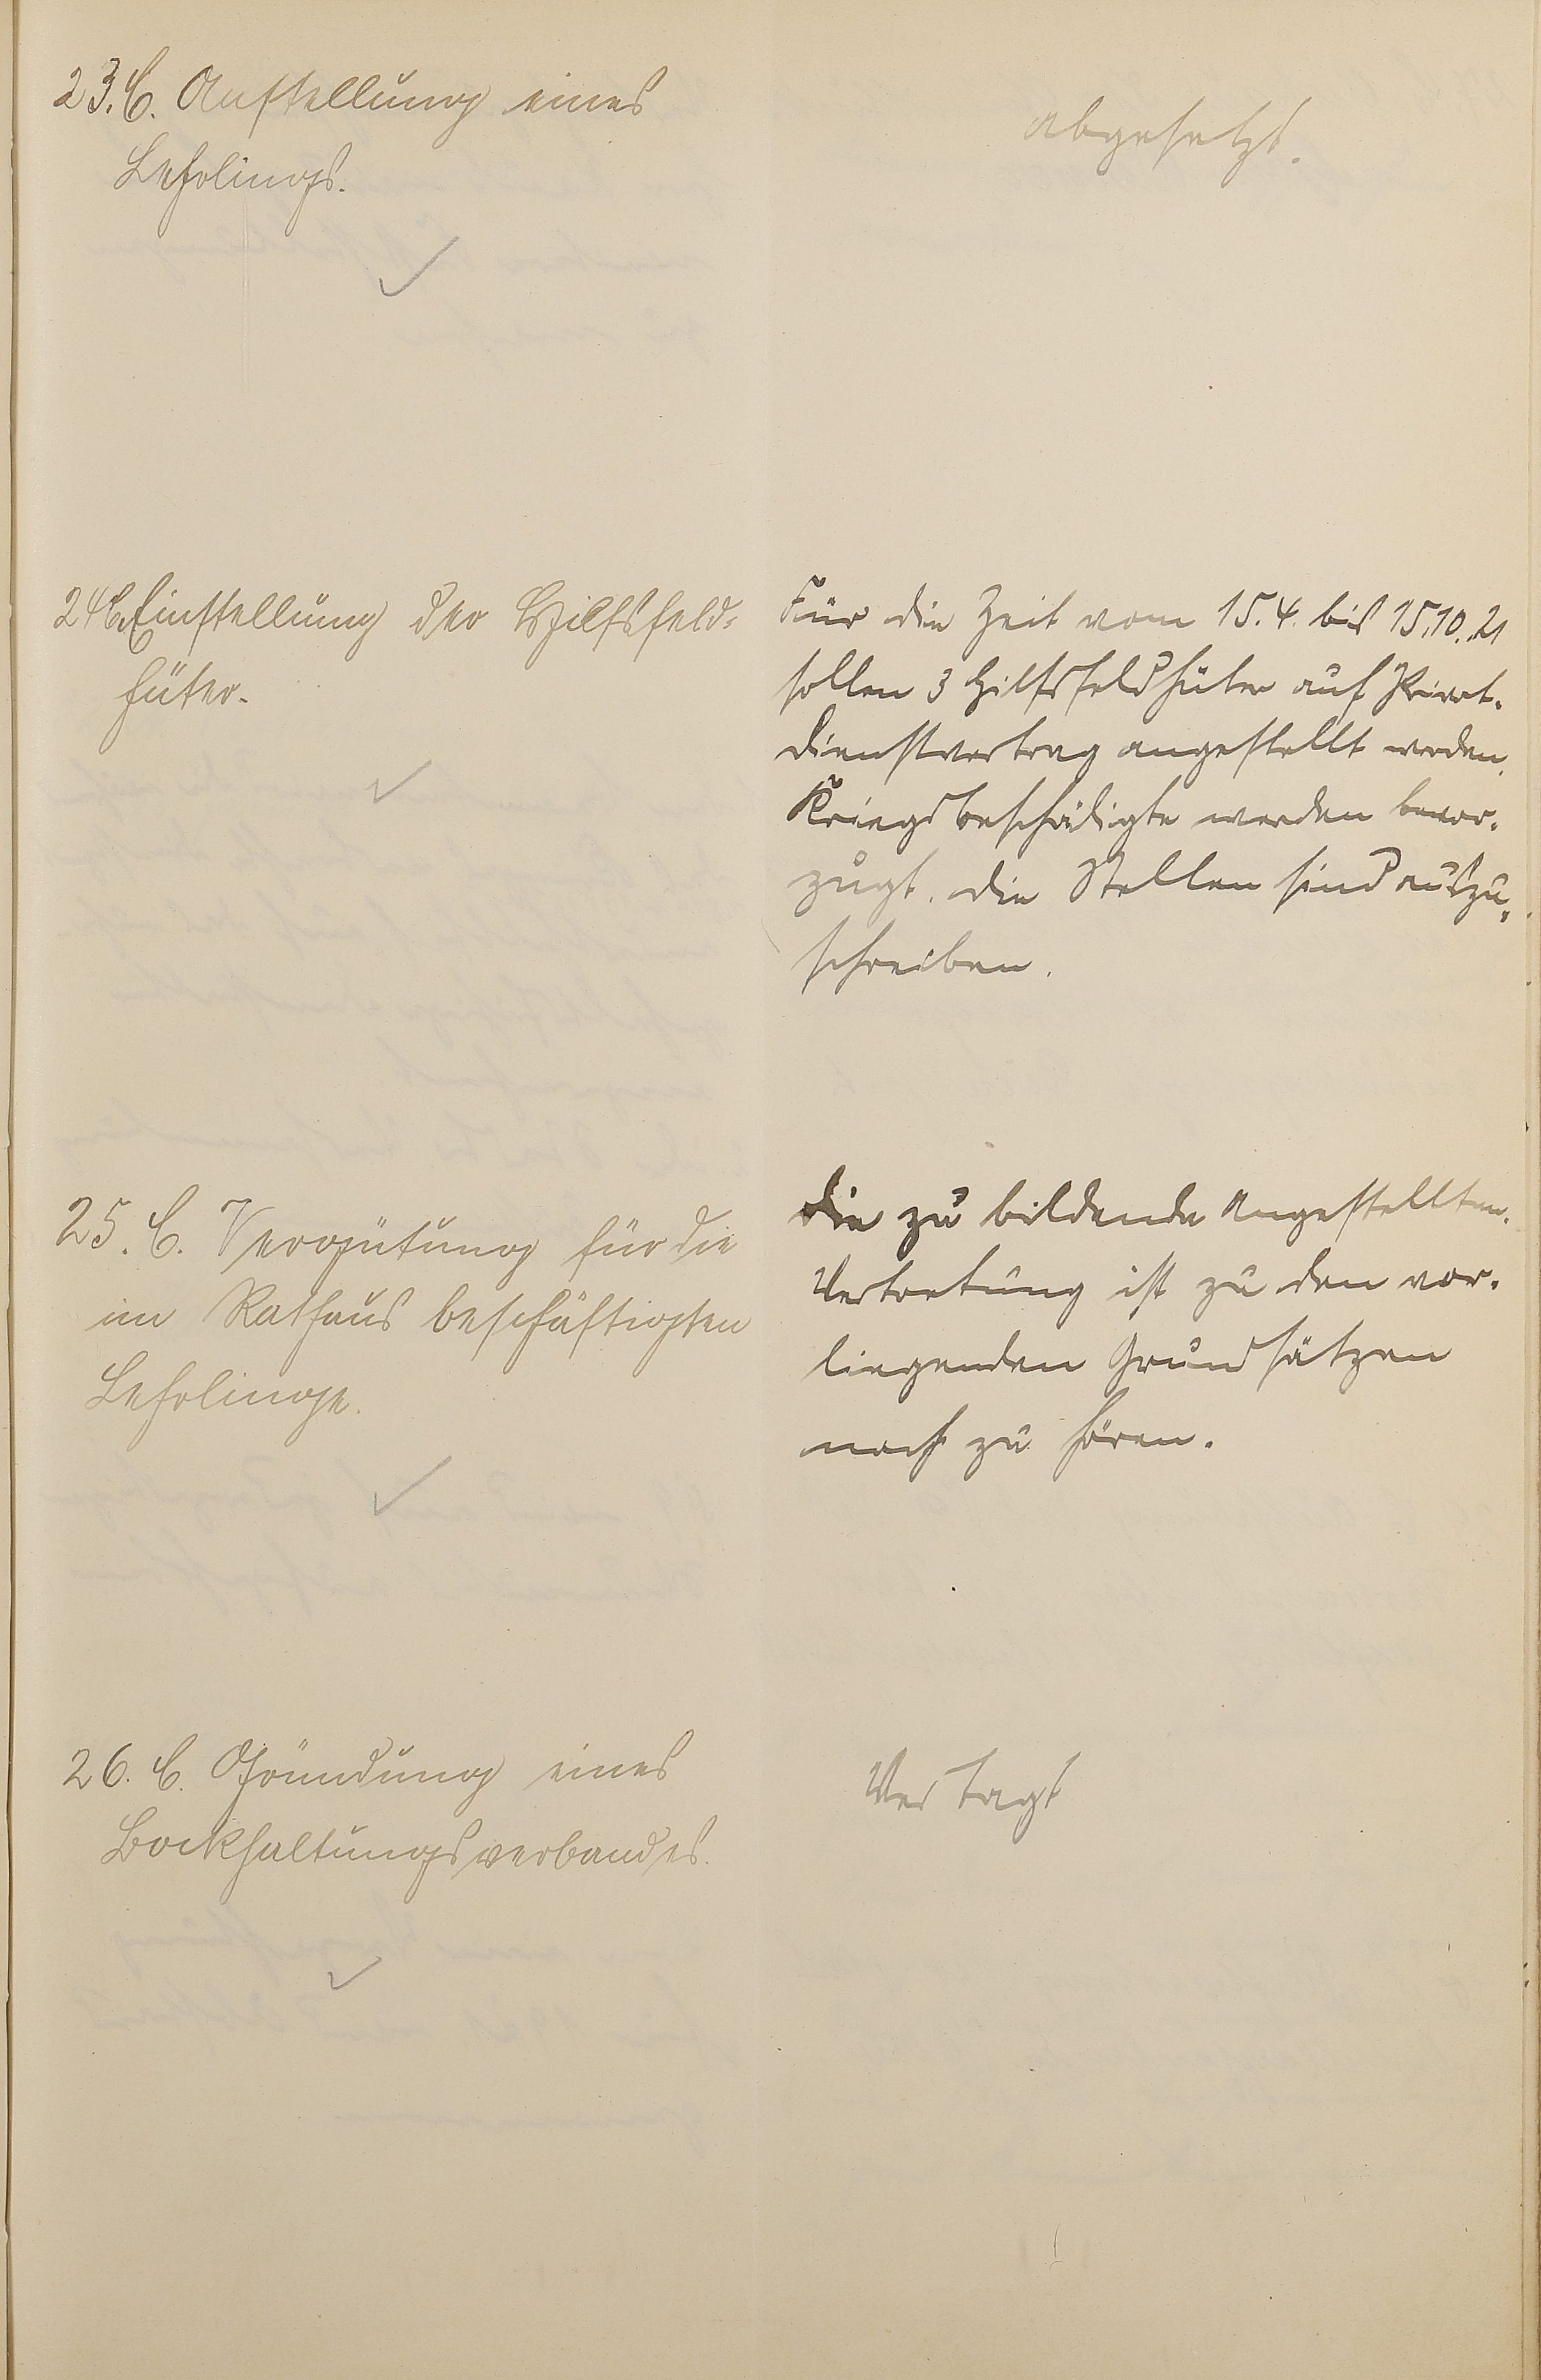 23. C. Anstellung eines
Lehrlings.
abgesetzt.
24 C. Einstellung der Hilfsfeld-
hüter.
Für die Zeit vom 15.4. bis 15.10.21
sollen 3 Hilfsfeldhüter auf Privat-
dienstvertrag angestellt werden.
Kriegsbeschädigte werden bevor-
zugt. Die Stellen sind auszu-
schreiben.
25. C. Vergütung für die
im Rathaus beschäftigten
Lehrlinge.
Die zu bildende Angestellten-
Vertretung ist zu den vor-
liegenden Grundsätzen
noch zu hören.
26. C. Gründung eines
Bockhaltungsverbandes.
Vertagt